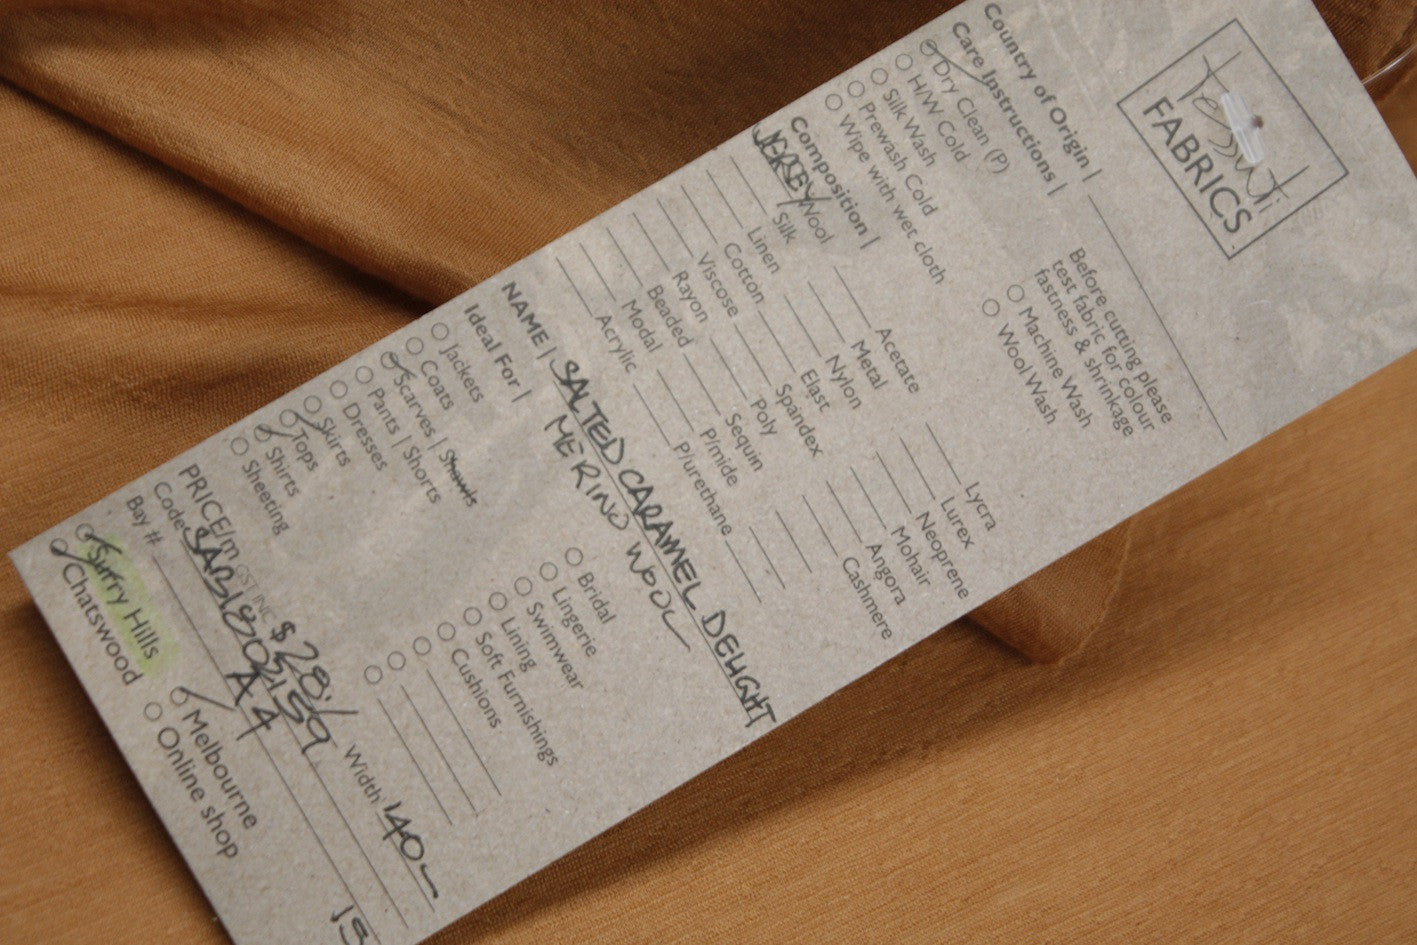 Tessuti
FABRICS
Country of Origin |
Care Instructions |
Before cutting please
test fabric for colour
fastness & shrinkage
Dry Clean (P)
H/W Cold
Silk Wash
Prewash Cold
Wipe with wet cloth
Machine Wash
Wool Wash
Composition |
JERSEY Wool
Silk
Linen
Cotton
Viscose
Rayon
Beaded
Modal
Acrylic
Acetate
Metal
Nylon
Elast
Spandex
Poly
Sequin
P/mide
P/urethane
Lycra
Lurex
Neoprene
Mohair
Angora
Cashmere
NAME | SALTED CARAMEL DELIGHT
MERINO WOOL
Ideal For |
Jackets
Coats
Scarves | Shawls
Pants | Shorts
Dresses
Skirts
Tops
Shirts
Sheeting
Bridal
Lingerie
Swimwear
Lining
Soft Furnishings
Cushions
PRICE/m GST INC $28.- Width 140
Code
Bay # A4
Surry Hills
Chatswood
Melbourne
Online shop